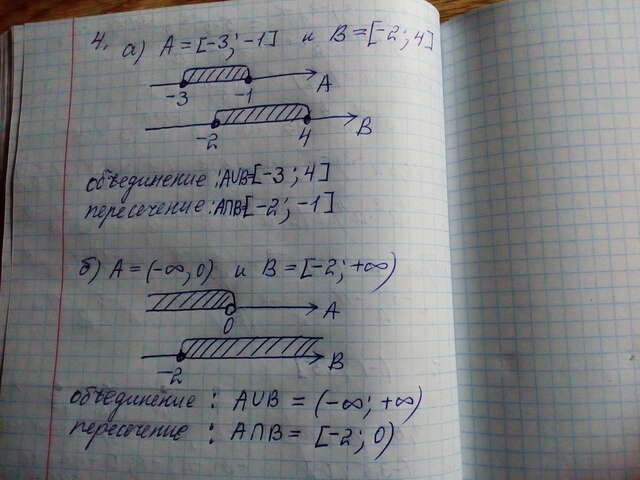 4. а) A = [-3; -1] и B = [-2; 4]
-3 -1 A
-2 4 B
объединение: A∪B=[-3; 4]
пересечение: A∩B=[-2; -1]
б) A = (-∞, 0) и B = [-2; +∞)
0 A
-2 B
объединение : A∪B = (-∞; +∞)
пересечение : A∩B = [-2; 0)